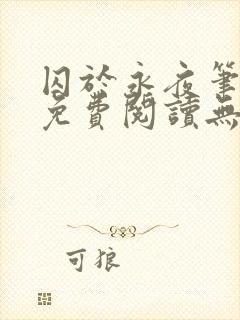 囚於永夜筆
免費閱讀無
可狼